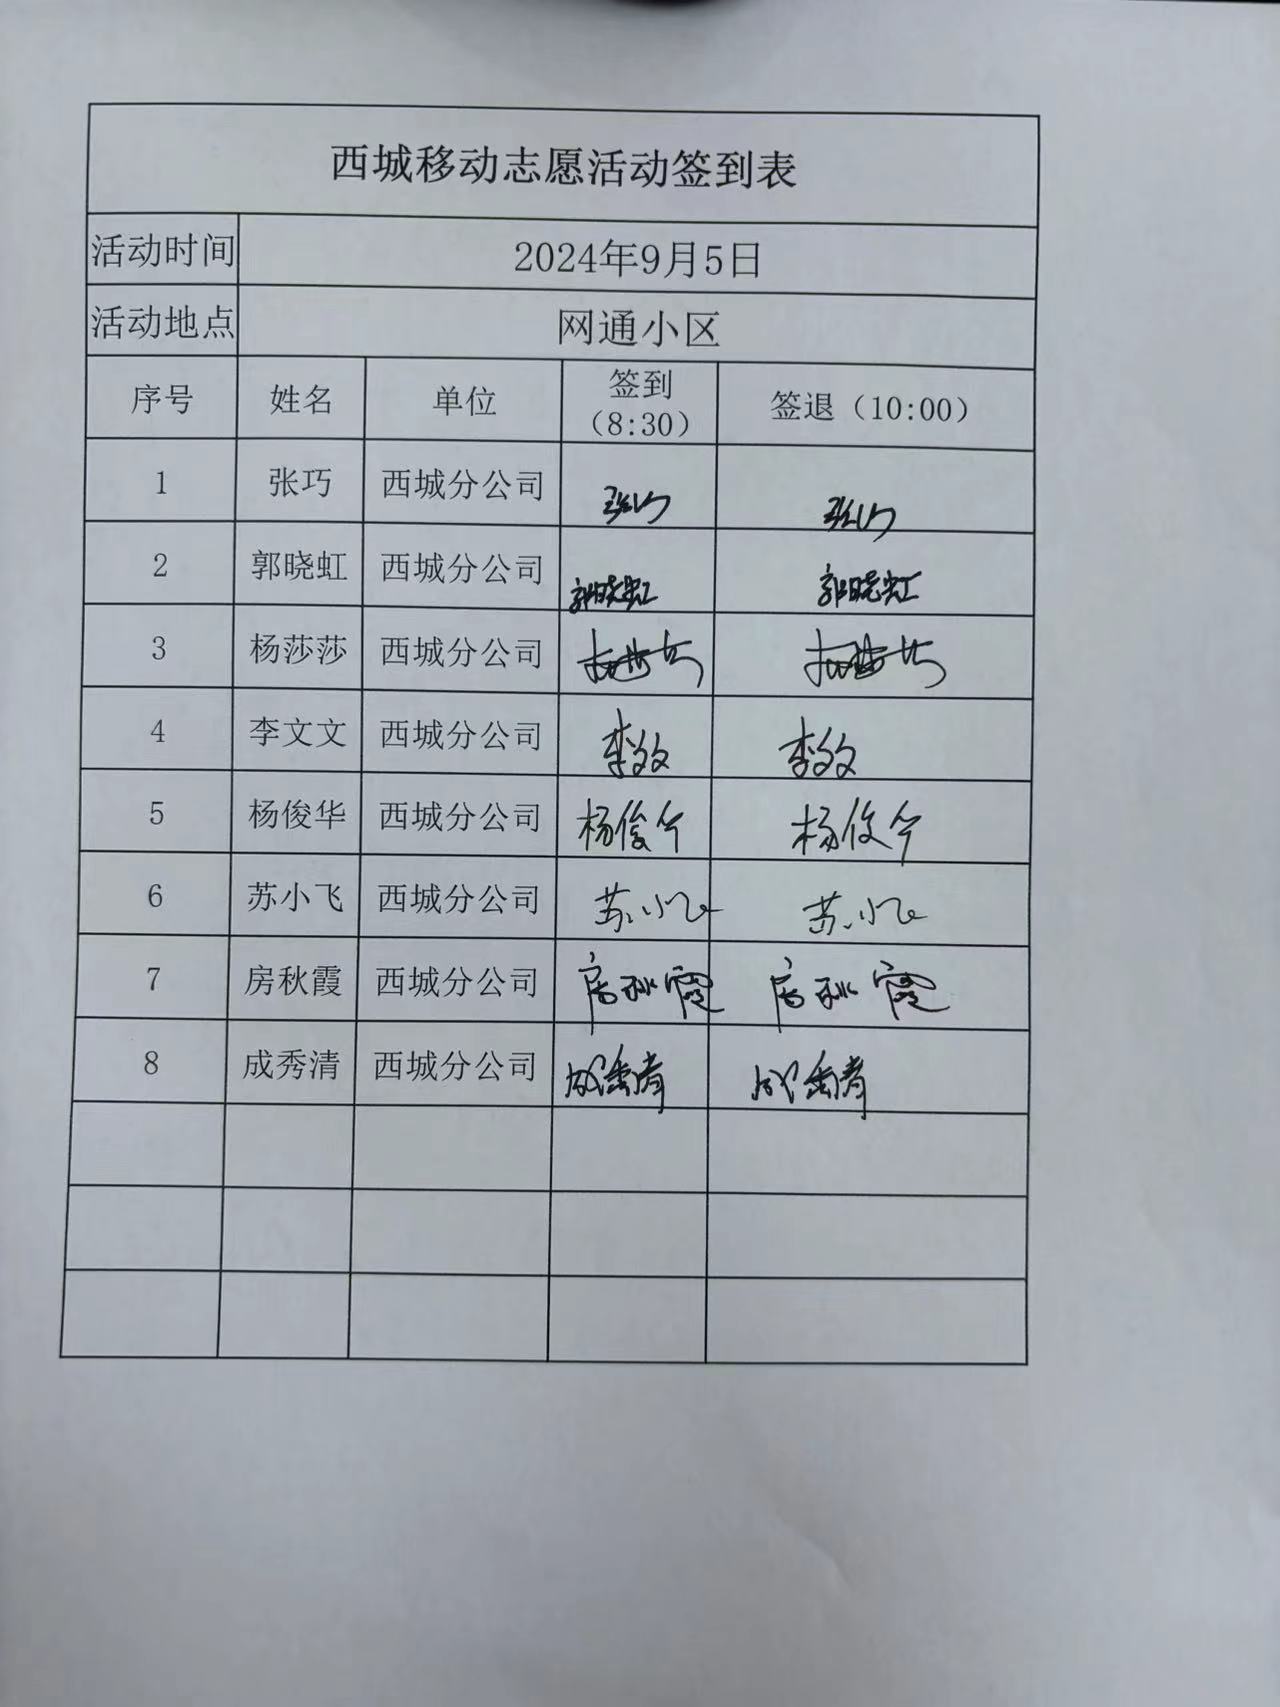 西城移动志愿活动签到表
活动时间 2024年9月5日
活动地点 网通小区
序号 姓名 单位 签到（8:30） 签退（10:00）
1 张巧 西城分公司 张巧 张巧
2 郭晓虹 西城分公司 郭晓虹 郭晓虹
3 杨莎莎 西城分公司 杨莎莎 杨莎莎
4 李文文 西城分公司 李文文 李文文
5 杨俊华 西城分公司 杨俊华 杨俊华
6 苏小飞 西城分公司 苏小飞 苏小飞
7 房秋霞 西城分公司 房秋霞 房秋霞
8 成秀清 西城分公司 成秀清 成秀清